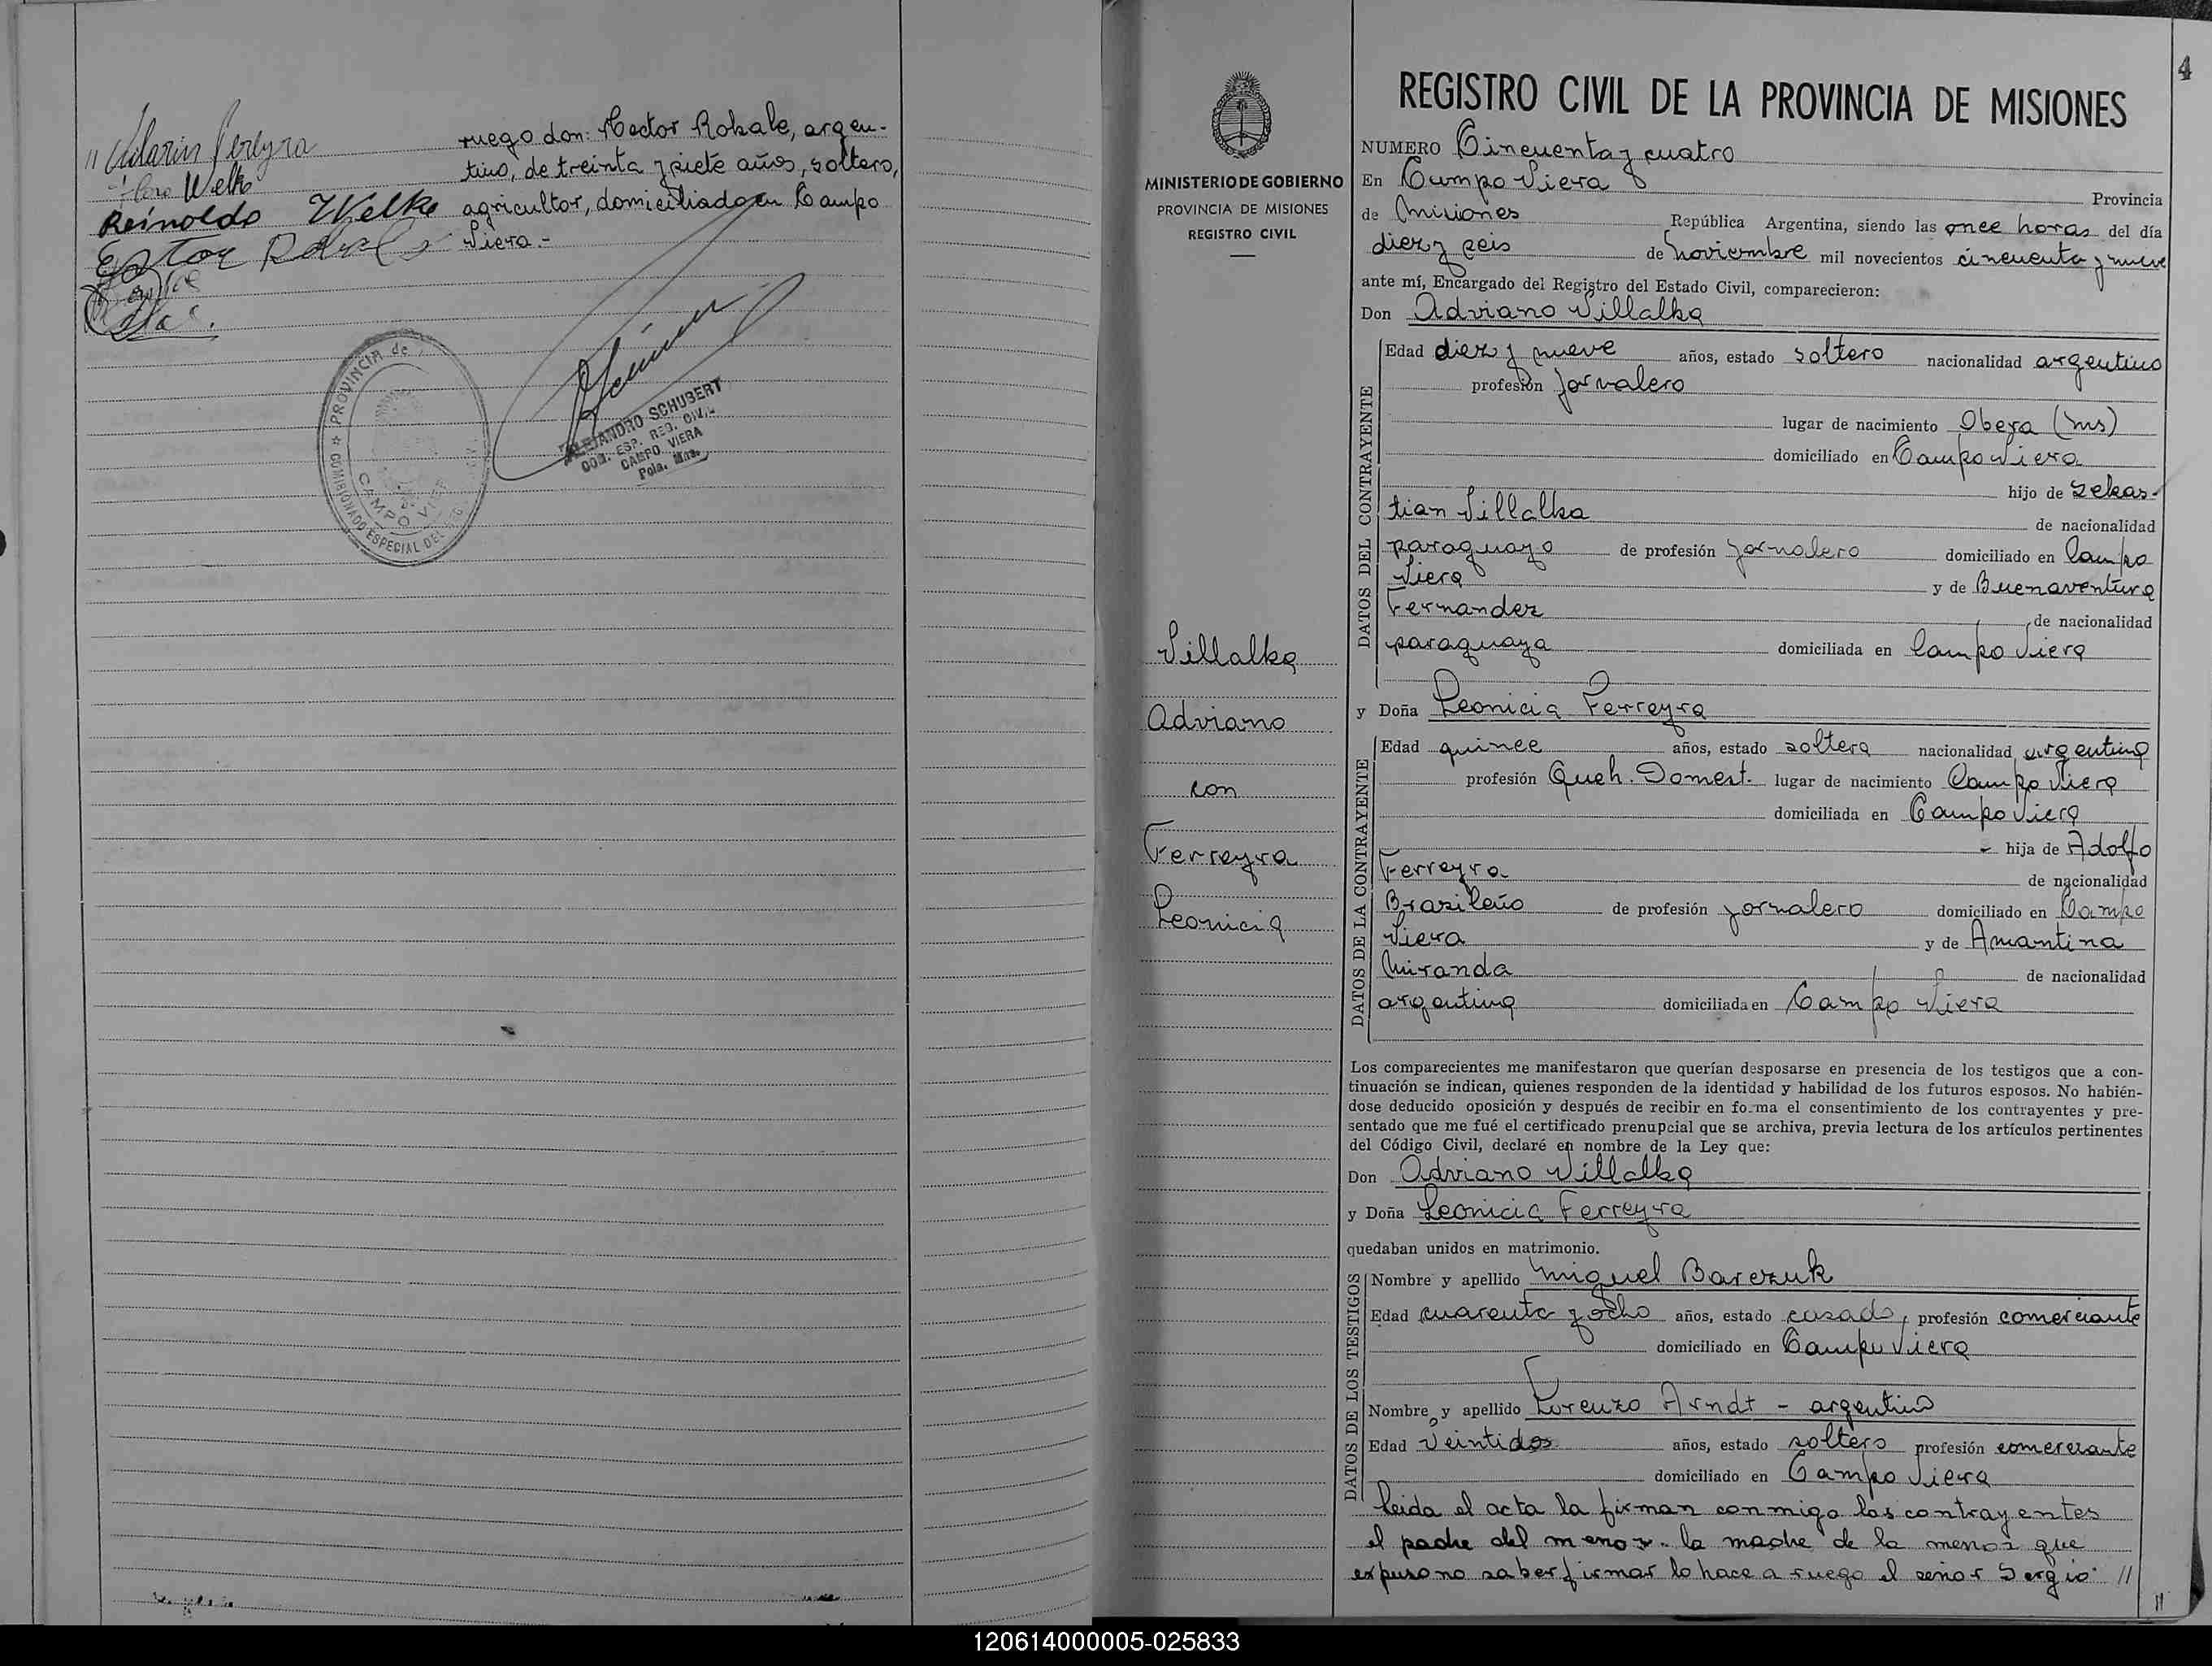 // Pereyra
ruego don: Hector Robale, argen-
tino, de treinta y siete años, soltero,
Welke
Reinoldo Welke
agricultor, domiciliado en Campo
Viera.-
PROVINCIA de
COMISIONADO ESPECIAL DEL
CAMPO VIERA
ALEJANDRO SCHUBERT
COM. ESP. REG. CIVIL
CAMPO VIERA
Pcia. Mnes.
4
MINISTERIO DE GOBIERNO
PROVINCIA DE MISIONES
REGISTRO CIVIL
Villalba
Adriano
con
Ferreyra
Leonicia
REGISTRO CIVIL DE LA PROVINCIA DE MISIONES
NUMERO Cincuenta y cuatro
En Campo Viera Provincia
de Misiones República Argentina, siendo las once horas del día
diez y seis de Noviembre mil novecientos cincuenta y nueve
ante mí, Encargado del Registro del Estado Civil, comparecieron:
Don Adriano Villalba
DATOS DEL CONTRAYENTE
Edad diez y nueve años, estado soltero nacionalidad argentino
profesión Jornalero
lugar de nacimiento Obera (Ms)
domiciliado en Campo Viera
hijo de Sebas-
tian Villalba
de nacionalidad
paraguayo de profesión jornalero domiciliado en Campo
Viera y de Buenaventura
Fernandez de nacionalidad
paraguaya domiciliada en Campo Viera
y Doña Leonicia Ferreyra
DATOS DE LA CONTRAYENTE
Edad quince años, estado soltera nacionalidad argentina
profesión Queh. Domest. lugar de nacimiento Campo Viera
domiciliada en Campo Viera
hija de Adolfo
Ferreyra de nacionalidad
Brasileño de profesión jornalero domiciliado en Campo
Viera y de Amantina
Miranda de nacionalidad
argentina domiciliada en Campo Viera
Los comparecientes me manifestaron que querían desposarse en presencia de los testigos que a con-
tinuación se indican, quienes responden de la identidad y habilidad de los futuros esposos. No habién-
dose deducido oposición y después de recibir en forma el consentimiento de los contrayentes y pre-
sentado que me fué el certificado prenupcial que se archiva, previa lectura de los artículos pertinentes
del Código Civil, declaré en nombre de la Ley que:
Don Adriano Villalba
y Doña Leonicia Ferreyra
quedaban unidos en matrimonio.
DATOS DE LOS TESTIGOS
Nombre y apellido Miguel Barczuk
Edad cuarenta y ocho años, estado casado, profesión comerciante
domiciliado en Campo Viera
Nombre y apellido Lorenzo Arndt - argentino
Edad Veintidos años, estado soltero profesión comerciante
domiciliado en Campo Viera
Leida el acta la firman conmigo los contrayentes
el padre del menor - la madre de la menor que
expuso no saber firmar lo hace a ruego el señor Sergio //
//
120614000005-025833